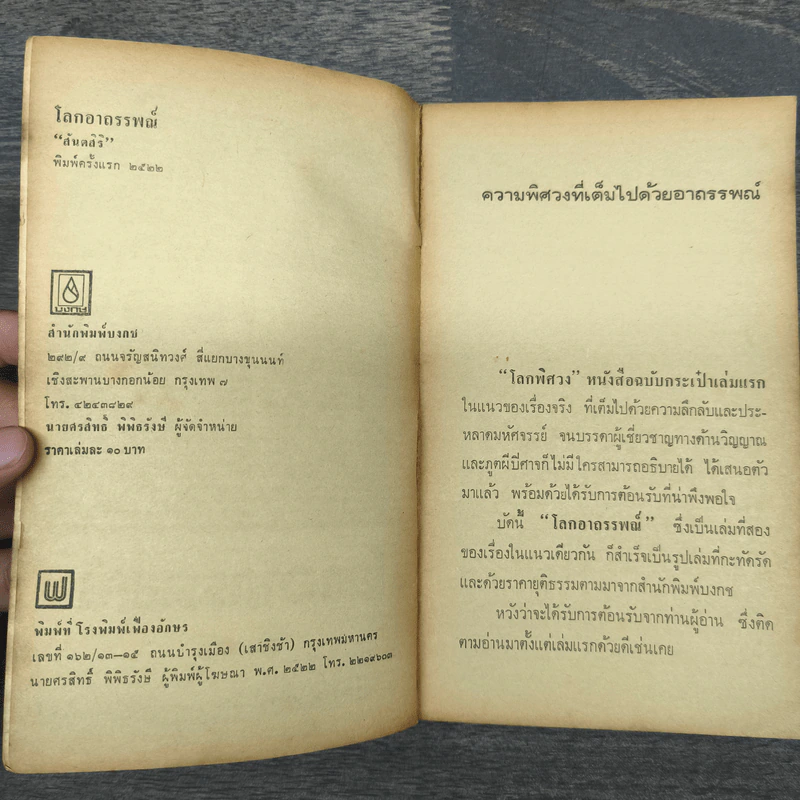 โลกอาถรรพณ์
“สันตสิริ”
พิมพ์ครั้งแรก ๒๕๒๒
บงกช
สำนักพิมพ์บงกช
๒๙๒/๙ ถนนจรัญสนิทวงศ์ สี่แยกบางขุนนนท์
เชิงสะพานบางกอกน้อย กรุงเทพ ๗
โทร. ๔๒๔๓๘๒๙
นายศรสิทธิ์ พิพิธรังษี ผู้จัดจำหน่าย
ราคาเล่มละ ๑๐ บาท
พิมพ์ที่ โรงพิมพ์เฟื่องอักษร
เลขที่ ๑๖๒/๑๓—๑๕ ถนนบำรุงเมือง (เสาชิงช้า) กรุงเทพมหานคร
นายศรสิทธิ์ พิพิธรังษี ผู้พิมพ์ผู้โฆษณา พ.ศ. ๒๕๒๒ โทร. ๒๒๑๙๖๐๓
ความพิศวงที่เต็มไปด้วยอาถรรพณ์
“โลกพิศวง” หนังสือฉบับกระเป๋าเล่มแรก
ในแนวของเรื่องจริง ที่เต็มไปด้วยความลึกลับและประ-
หลาดมหัศจรรย์ จนบรรดาผู้เชี่ยวชาญทางด้านวิญญาณ
และภูตผีปีศาจก็ไม่มีใครสามารถอธิบายได้ ได้เสนอตัว
มาแล้ว พร้อมด้วยได้รับการต้อนรับที่น่าพึงพอใจ
บัดนี้ “โลกอาถรรพณ์” ซึ่งเป็นเล่มที่สอง
ของเรื่องในแนวเดียวกัน ก็สำเร็จเป็นรูปเล่มที่กะทัดรัด
และด้วยราคายุติธรรมตามมาจากสำนักพิมพ์บงกช
หวังว่าจะได้รับการต้อนรับจากท่านผู้อ่าน ซึ่งติด
ตามอ่านมาตั้งแต่เล่มแรกด้วยดีเช่นเคย